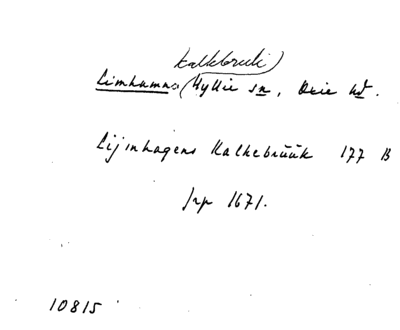 kalkbrott
Limhamns (Hyllie sn, Oxie hd.
Lijmhagens Kalkebrüük 177 B
Jrp 1671.
10815